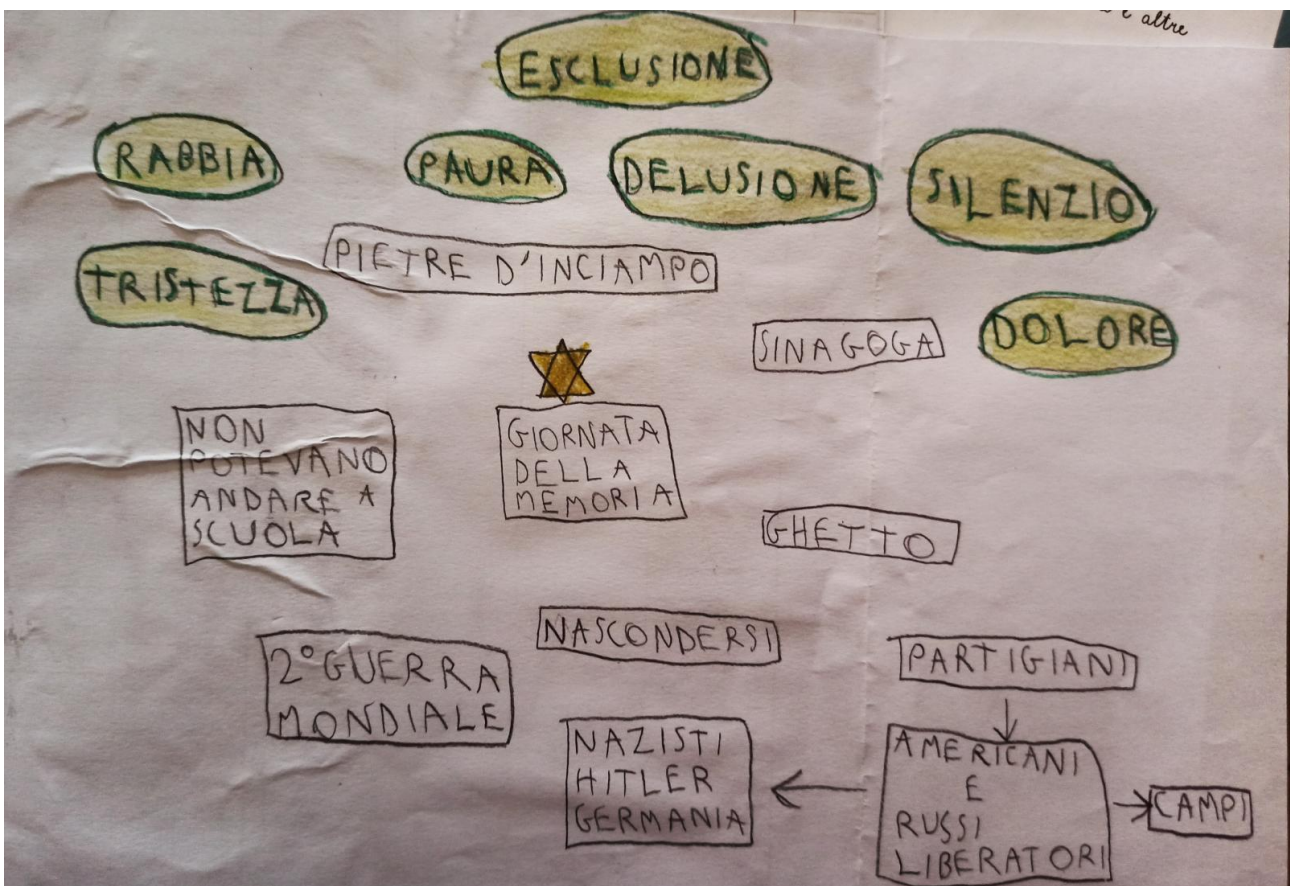 altre
ESCLUSIONE
RABBIA
PAURA
DELUSIONE
SILENZIO
PIETRE D'INCIAMPO
TRISTEZZA
SINAGOGA
DOLORE
NON
POTEVANO
ANDARE A
SCUOLA
GIORNATA
DELLA
MEMORIA
GHETTO
NASCONDERSI
2° GUERRA
MONDIALE
PARTIGIANI
NAZISTI
HITLER
GERMANIA
AMERICANI
E
RUSSI
LIBERATORI
CAMPI